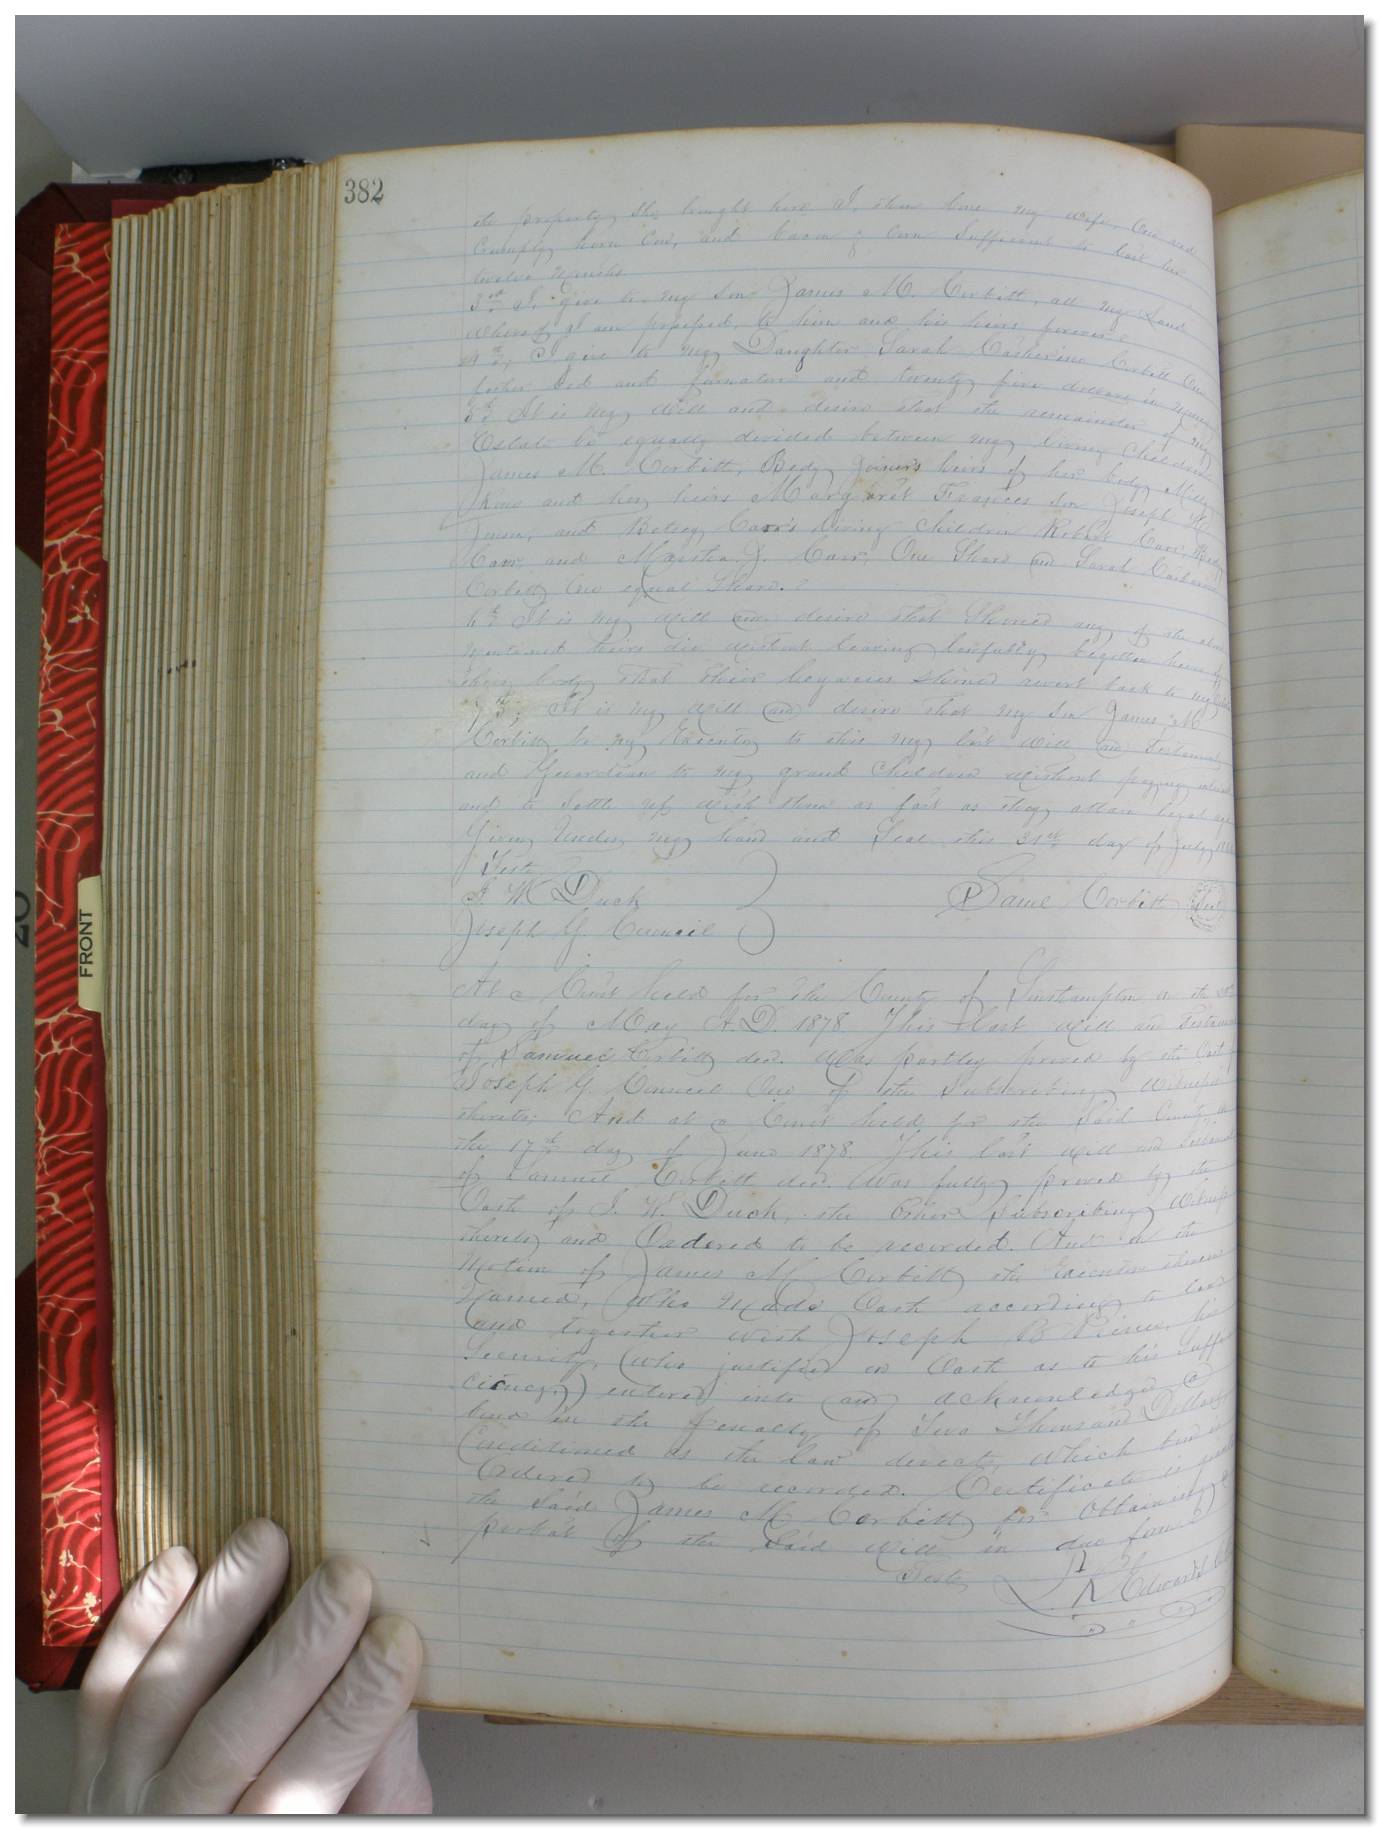 382
property she brought here I then loan my wife, One
horn Cow, and bacon & corn Sufficient to last her
twelve months
3rd I give to my Son James M. Corbitt, all my Land
whereof I am possessed, to him and his heirs forever
4th, I give to my Daughter Sarah Catherine Corbitt One
feather bed and furnature and twenty five dollars in money
5th It is my will and desire that the remainder of my
Estate be equally devided between my living Children
James M. Corbitt, Bedy Joiner's heirs of her body, Milly
and her heirs Margaret Frances Son Joseph H.
and Betsey Carr's living Children Robert Carr,
Carr and Martha J. Carr, One Share and Sarah Catharine
Corbitt two equal Share.
6th It is my will and desire that Should any of the above
mentioned heirs die without leaving lawfully begotten heirs of
their body that their legacies Should revert back to my
7th, It is my will and desire that my Son James M
Corbitt be my Executor to this my last will and Testament
and Guardian to my grand Children without paying interest
and to Settle up with them as fast as they attain legal age
Given Under my hand and Seal this 31st day of July
Teste
J. W. Duck
Saml Corbitt Seal
Joseph G. Council
At a Court held for the County of Southampton on the
day of May A.D. 1878 This last will and Testament
of Samuel Corbitt decd. Was partley proved by the Oath of
Joseph G. Council One of the Subscribing Witnesses
thereto; And at a Court held for the Said County on
the 17th day of June 1878. This last will and Testament
of Samuel Corbitt decd. Was fully proved by the
Oath of J. W. Duck, the Other Subscribing Witness
thereto and Ordered to be recorded. And on the
Motion of James M Corbitt the Executor therein
Named, Who Made Oath according to law
and together with Joseph B Prince, his
Security, (who justified on Oath as to his Suffi
ciency,) entered into and acknowledged a
bond in the penalty of Two Thousand Dollars
Conditioned as the law directs, Which bond is
Ordered to be recorded. Certificate is granted
the Said James M Corbitt for Obtaining a
probat of the Said will in due form
Teste
Edwards
FRONT